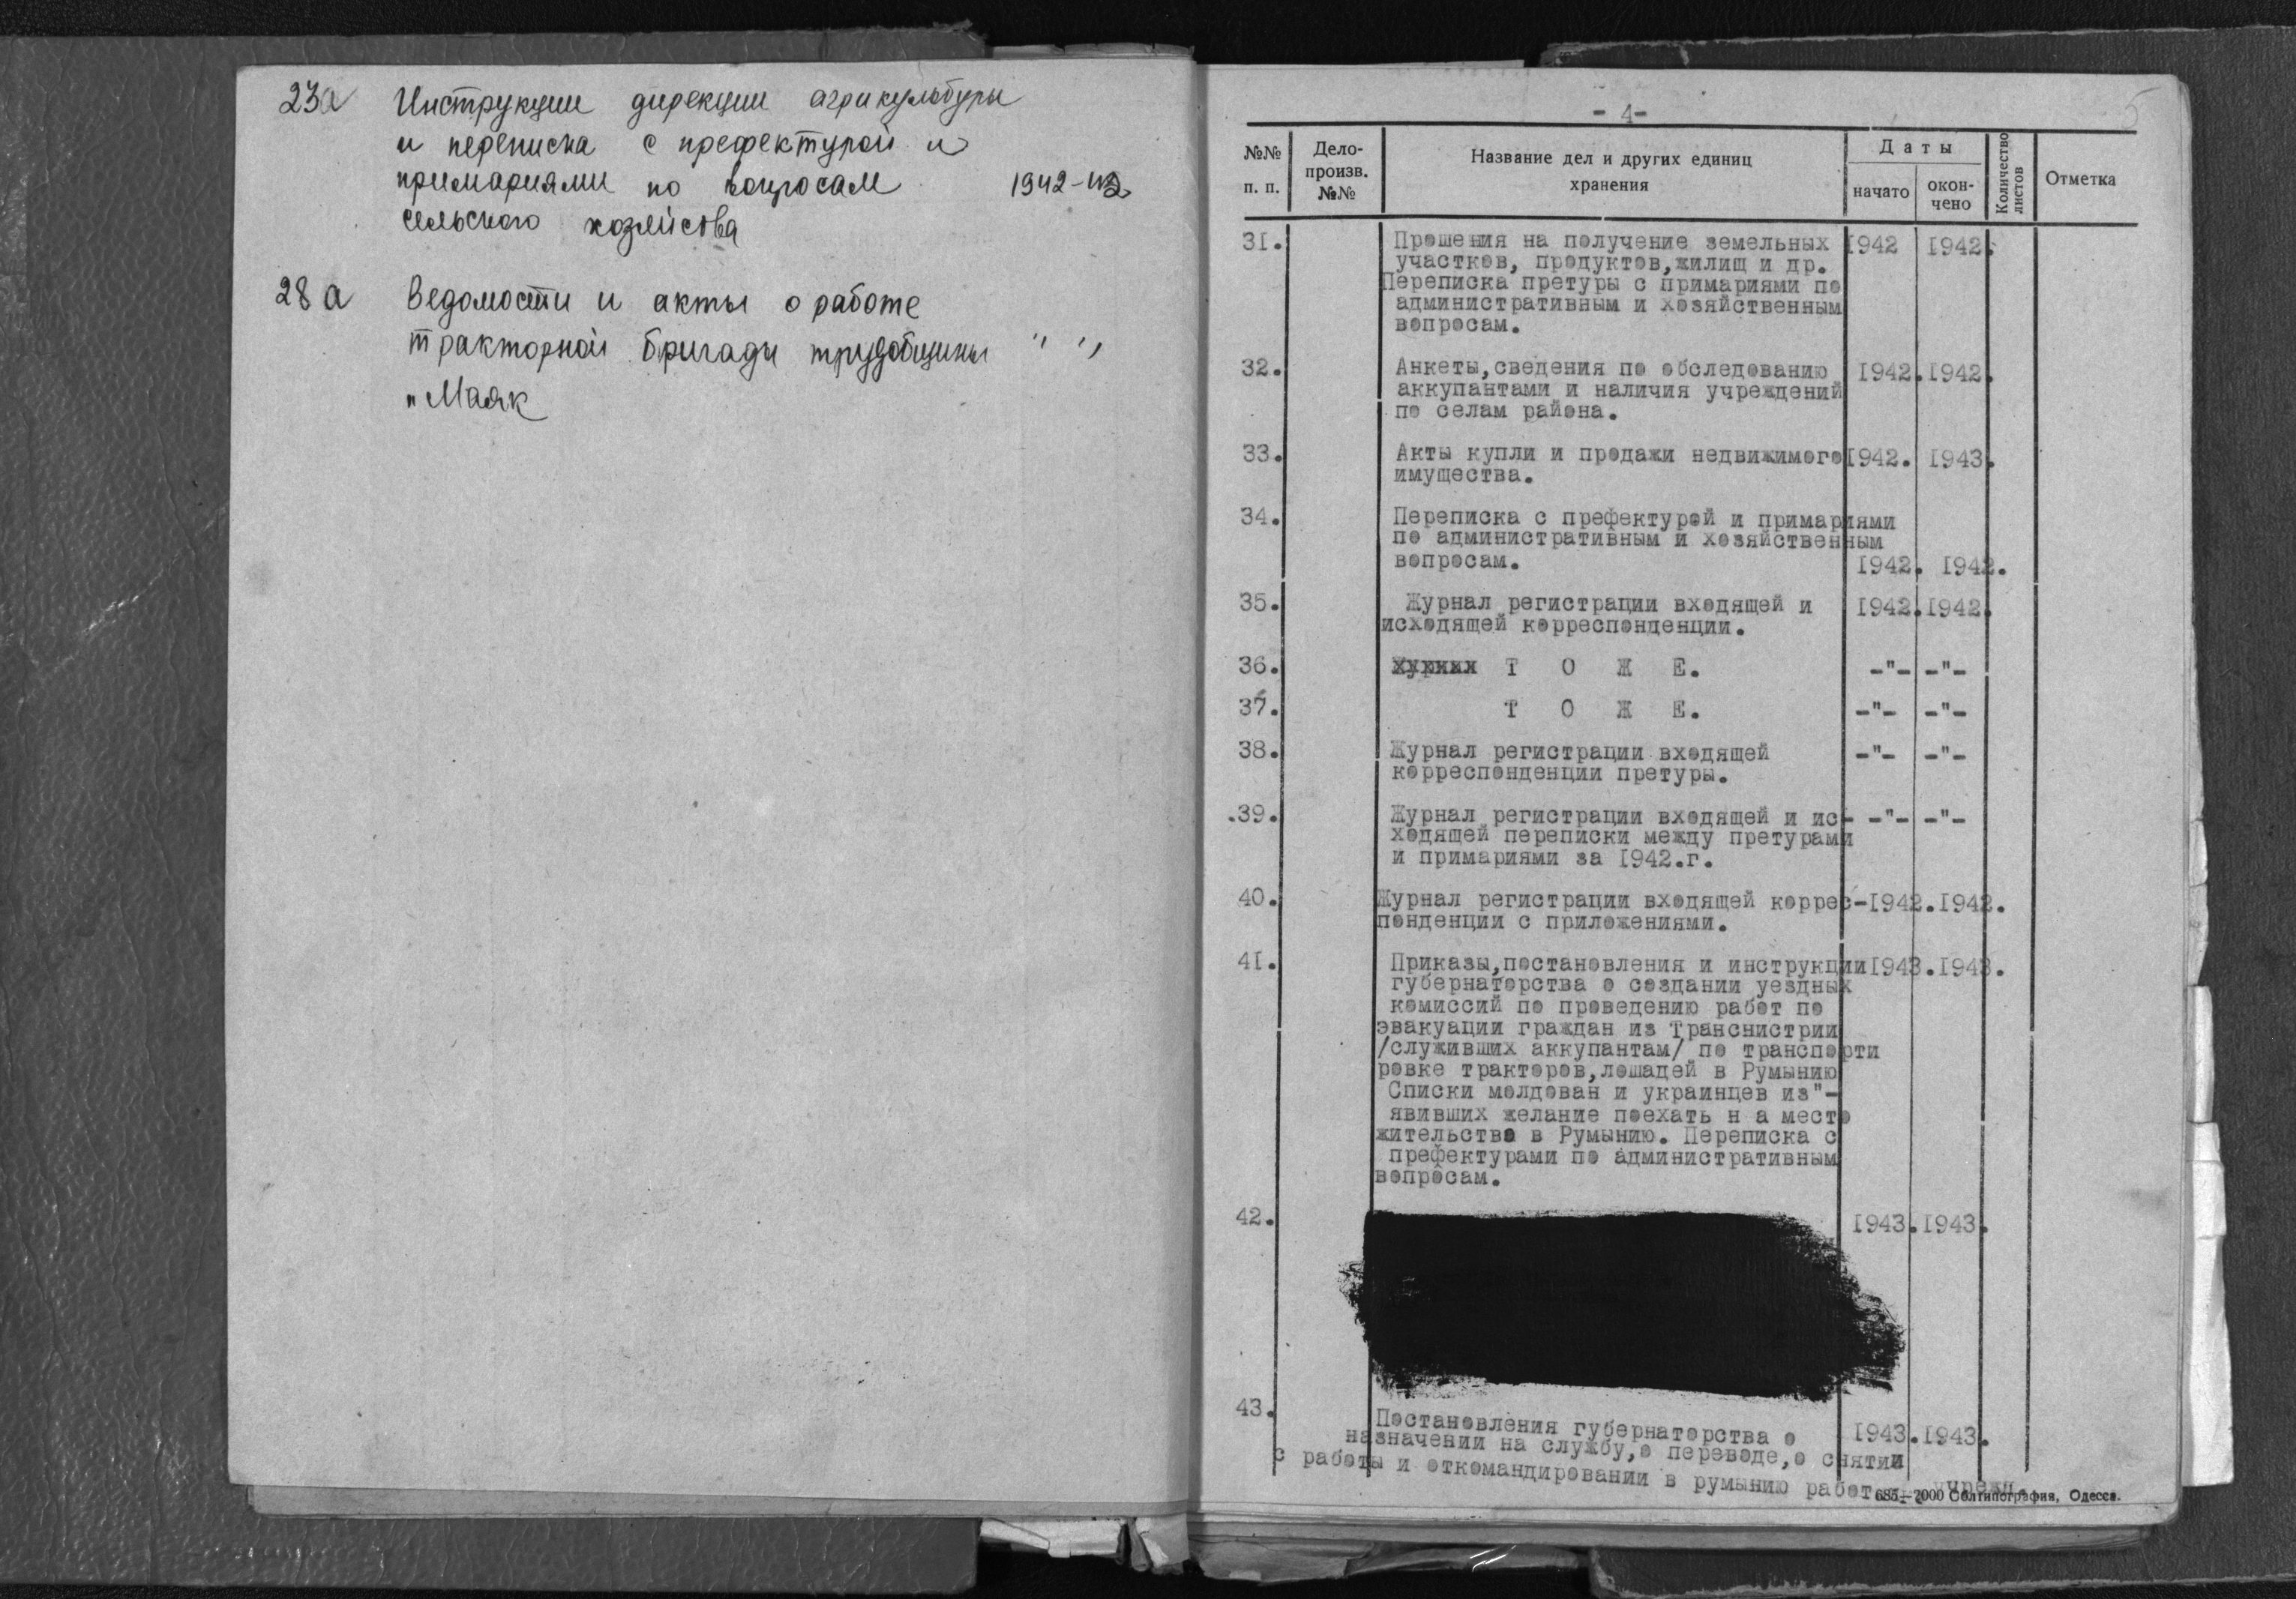 23а Инструкции дирекции агрикультуры
и переписка с префектурой и
примариями по вопросам 1942-43
сельского хозяйства
28а Ведомости и акты о работе
тракторной бригады трудобщины " "
"Маяк
5
- 4-
№№ п. п.
Дело-произв. №№
Название дел и других единиц
хранения
Даты
начато
окон-
чено
Количество
листов
Отметка
31. Прошения на получение земельных 1942 1942.
участков, продуктов,жилищ и др.
Переписка претуры с примариями по
административным и хозяйственным
вопросам.
32. Анкеты,сведения по обследованию 1942.1942.
аккупантами и наличия учреждений
по селам района.
33. Акты купли и продажи недвижимого 1942. 1943.
имущества.
34. Переписка с префектурой и примариями
по административным и хозяйственным
вопросам. 1942. 1942.
35. Журнал регистрации входящей и 1942.1942.
исходящей корреспонденции.
36. Т О Ж Е. -"- -"-
37. Т О Ж Е. -"- -"-
38. Журнал регистрации входящей -"- -"-
корреспонденции претуры.
.39. Журнал регистрации входящей и ис- -"- -"-
ходящей переписки между претурами
и примариями за 1942.г.
40. Журнал регистрации входящей коррес-1942.1942.
понденции с приложениями.
41. Приказы,постановления и инструкции1943.1943.
губернаторства о создании уездных
комиссий по проведению работ по
эвакуации граждан из Транснистрии
/служивших аккупантам/ по транспорти
ровке тракторов,лошадей в Румынию
Списки молдован и украинцев из"-
явивших желание поехать н а место
жительство в Румынию. Переписка с
префектурами по административным
вопросам.
42. 1943.1943.
43. Постановления губернаторства о 1943.1943.
назначении на службу,о переводе,о снятии
с работы и откомандировании в румынию работ. учрежд.
685—7000 Облтипография, Одесса.